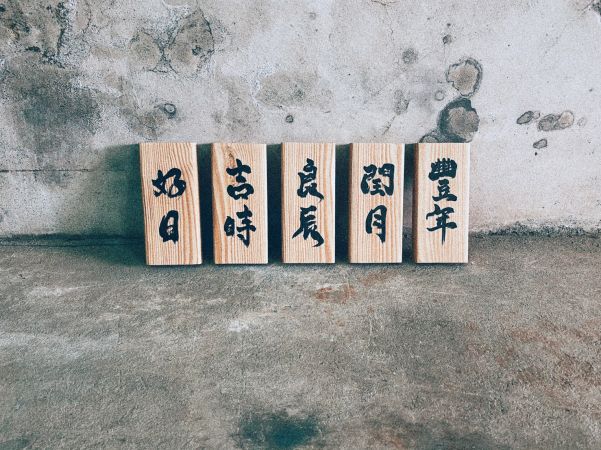 好日
吉時
良辰
閏月
豐年